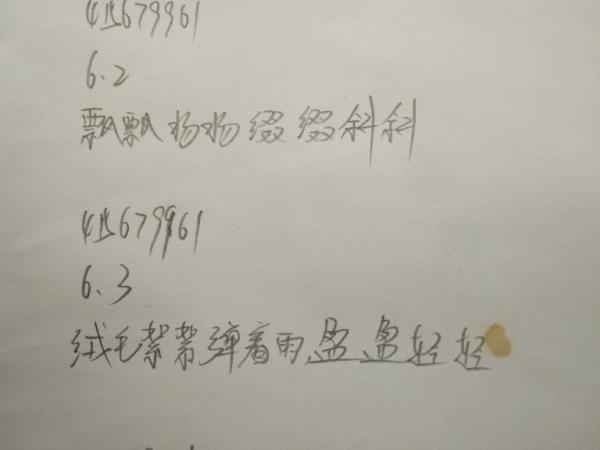 415679961
6.2
飘飘扬扬缀缀斜斜
415679961
6.3
绒毛絮絮弹着雨,盈盈轻轻